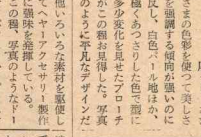 さまの色彩を使つて美しさ
を強調する傾向が強いのに
反し、白色、パール地ほか、
極くあつさりした色で型に
多少変化を見せたブローチ
がこの程お見得した。写真
のように平凡なデザインだ
他いろいろな素材を駆使し
てヘヤーアクセサリー製作
に強味を発揮している。
この程、写真のようなドー